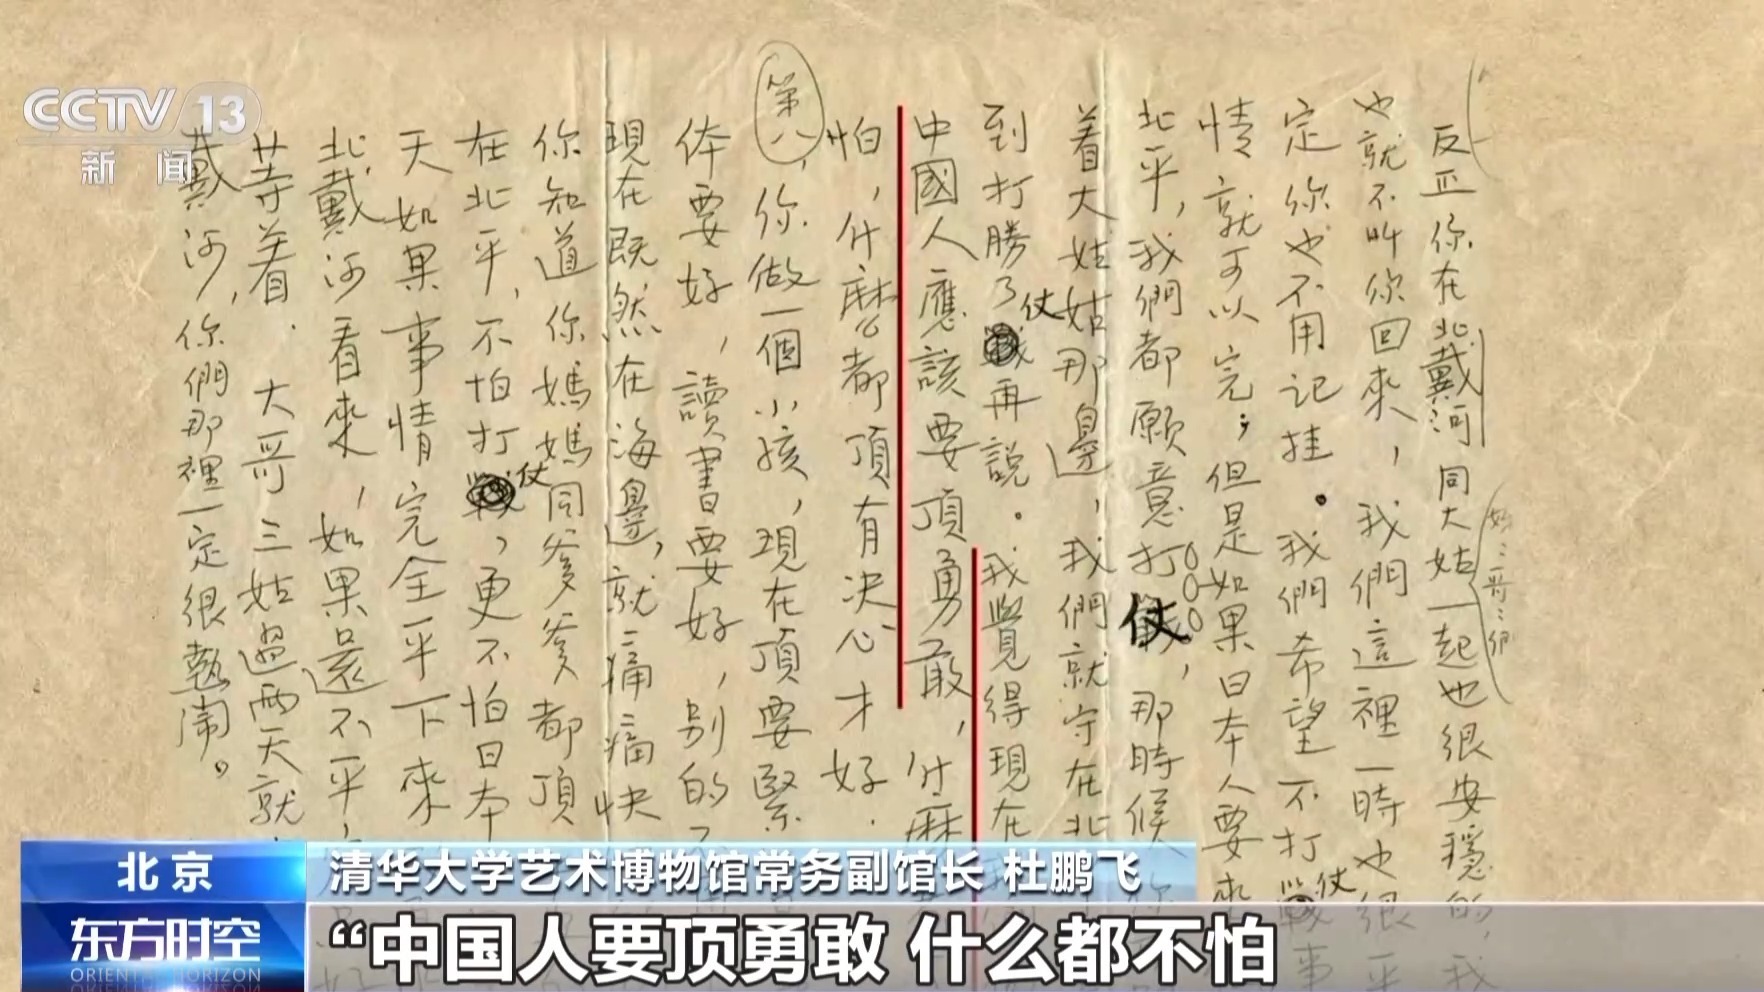 CCTV 13
新闻
反正你在北戴河同大姑一起也很安穩的,我
也就不叫你回來,我們這裡一時也很平
定你也不用记挂。我們希望不打仗事
情就可以完;但是如果日本人要來
北平,我們都願意打仗,那時候你
着大姑姑那邊,我們就守在北
到打勝了仗再說。我覺得現在我
中國人應該要頂勇敢,什麽
怕,什麽都頂有决心才好.
第八,你做一個小孩,現在頂要緊
体要好,讀書要好,別的
現在既然在海邊,就痛痛快
你知道你媽媽同爹爹都頂
在北平,不怕打仗,更不怕日本
天如果事情完全平下來
北戴河看來,如果還不平
等着.大哥三姑過兩天就
戴河,你們那裡一定很熱鬧。
北京
清华大学艺术博物馆常务副馆长 杜鹏飞
东方时空
ORIENTAL HORIZON
“中国人要顶勇敢 什么都不怕